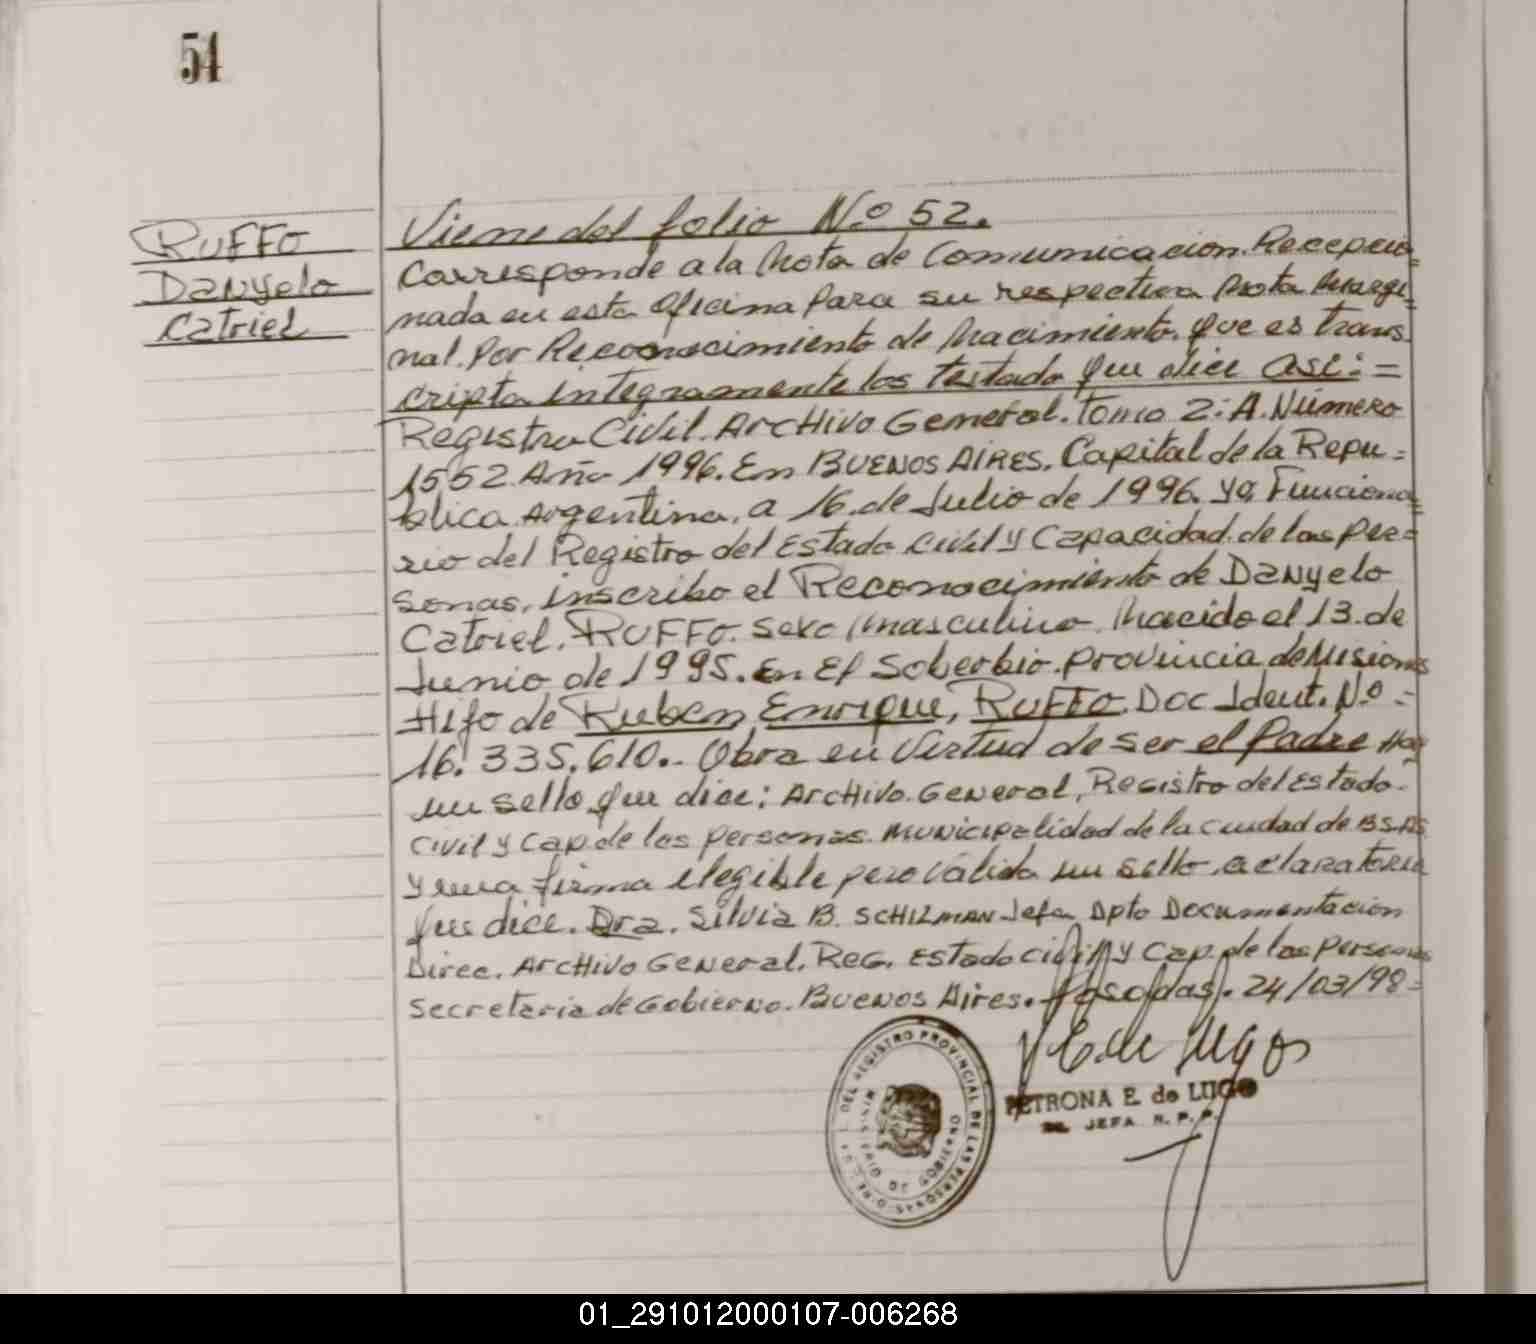 54
RUFFO
Danyelo
Catriel
Viene del folio Nº 52.
Corresponde a la Nota de Comunicacion. Recepcio=
nada en esta Oficina Para su respectiva Nota Margi=
nal. Por Reconocimiento de Nacimiento. que es trans
cripta integramente los testado que dice asi: =
Registro Civil. Archivo General. Tomo 2: A. Número
1552. Año 1996. En BUENOS AIRES. Capital de la Repu=
blica Argentina, a 16. de Julio de 1996. yo, Funciona=
rio del Registro del Estado Civil y Capacidad. de las Per=
sonas, inscribo el Reconocimiento de Danyelo
Catriel. RUFFO. Sexo masculino. Nacido el 13. de
Junio de 1995. En El Soberbio. Provincia de Misiones
Hijo de Ruben Enrique, RUFFO. Doc Ident. Nº =
16.335.610.- Obra en Virtud de ser el Padre Hay
un sello que dice: Archivo. General, Registro del Estado.
Civil y Cap. de las personas. Municipalidad de la ciudad de BS. AS
y una firma ilegible pero válida un sello. aclaratoria
que dice. Dra. Silvia B. SCHIZMAN Jefa Dpto Documentacion
Direc. Archivo General. Reg. Estado civil y Cap. de las Personas
Secretaria de Gobierno. Buenos Aires. Posadas. 24/03/98=
E. de Lugo
PETRONA E. de LUGO
JEFA R. P. P.
DEL REGISTRO PROVINCIAL DE LAS PERSONAS
MINISTERIO DE GOBIERNO
01_291012000107-006268